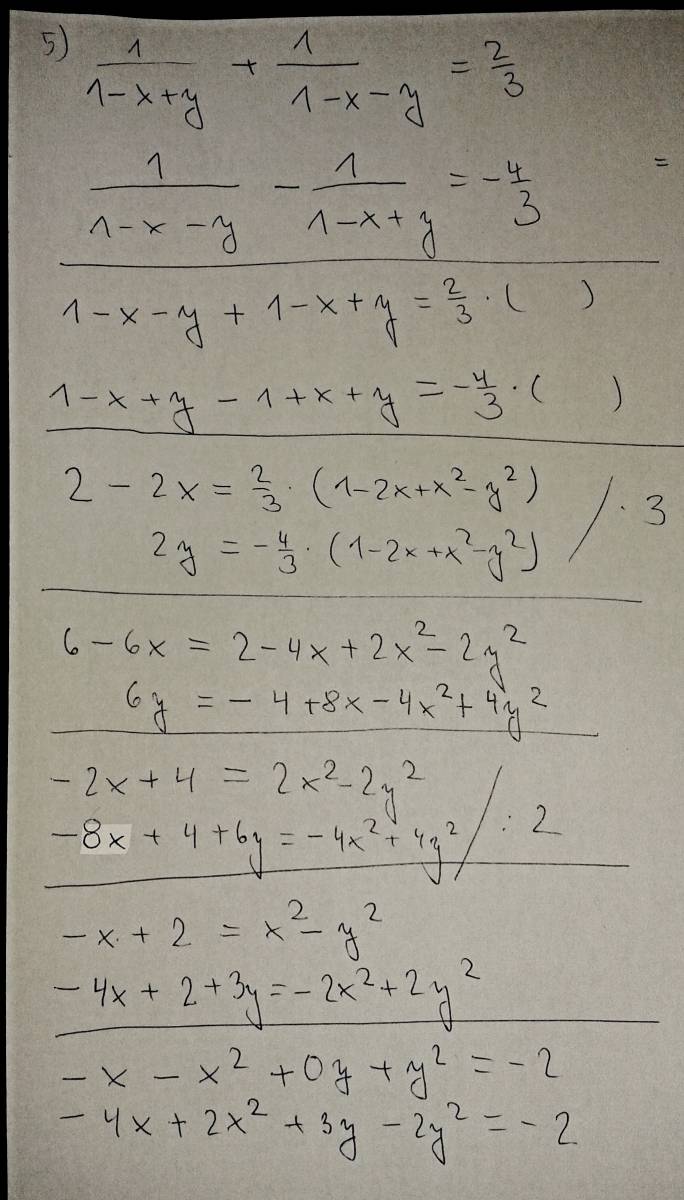 5) 1/(1-x+y) + 1/(1-x-y) = 2/3
1/(1-x-y) - 1/(1-x+y) = -4/3 =
1-x-y + 1-x+y = 2/3 · ( )
1-x+y - 1+x+y = -4/3 · ( )
2 - 2x = 2/3 · (1-2x+x²-y²) / · 3
2y = -4/3 · (1-2x+x²-y²)
6 - 6x = 2-4x+2x²-2y²
6y = - 4+8x-4x²+4y²
-2x+4 = 2x²-2y² / : 2
-8x + 4+6y = -4x²+4y²
-x + 2 = x²-y²
-4x + 2+3y = -2x²+2y²
-x - x² + 0y + y² = -2
-4x + 2x² + 3y - 2y² = -2